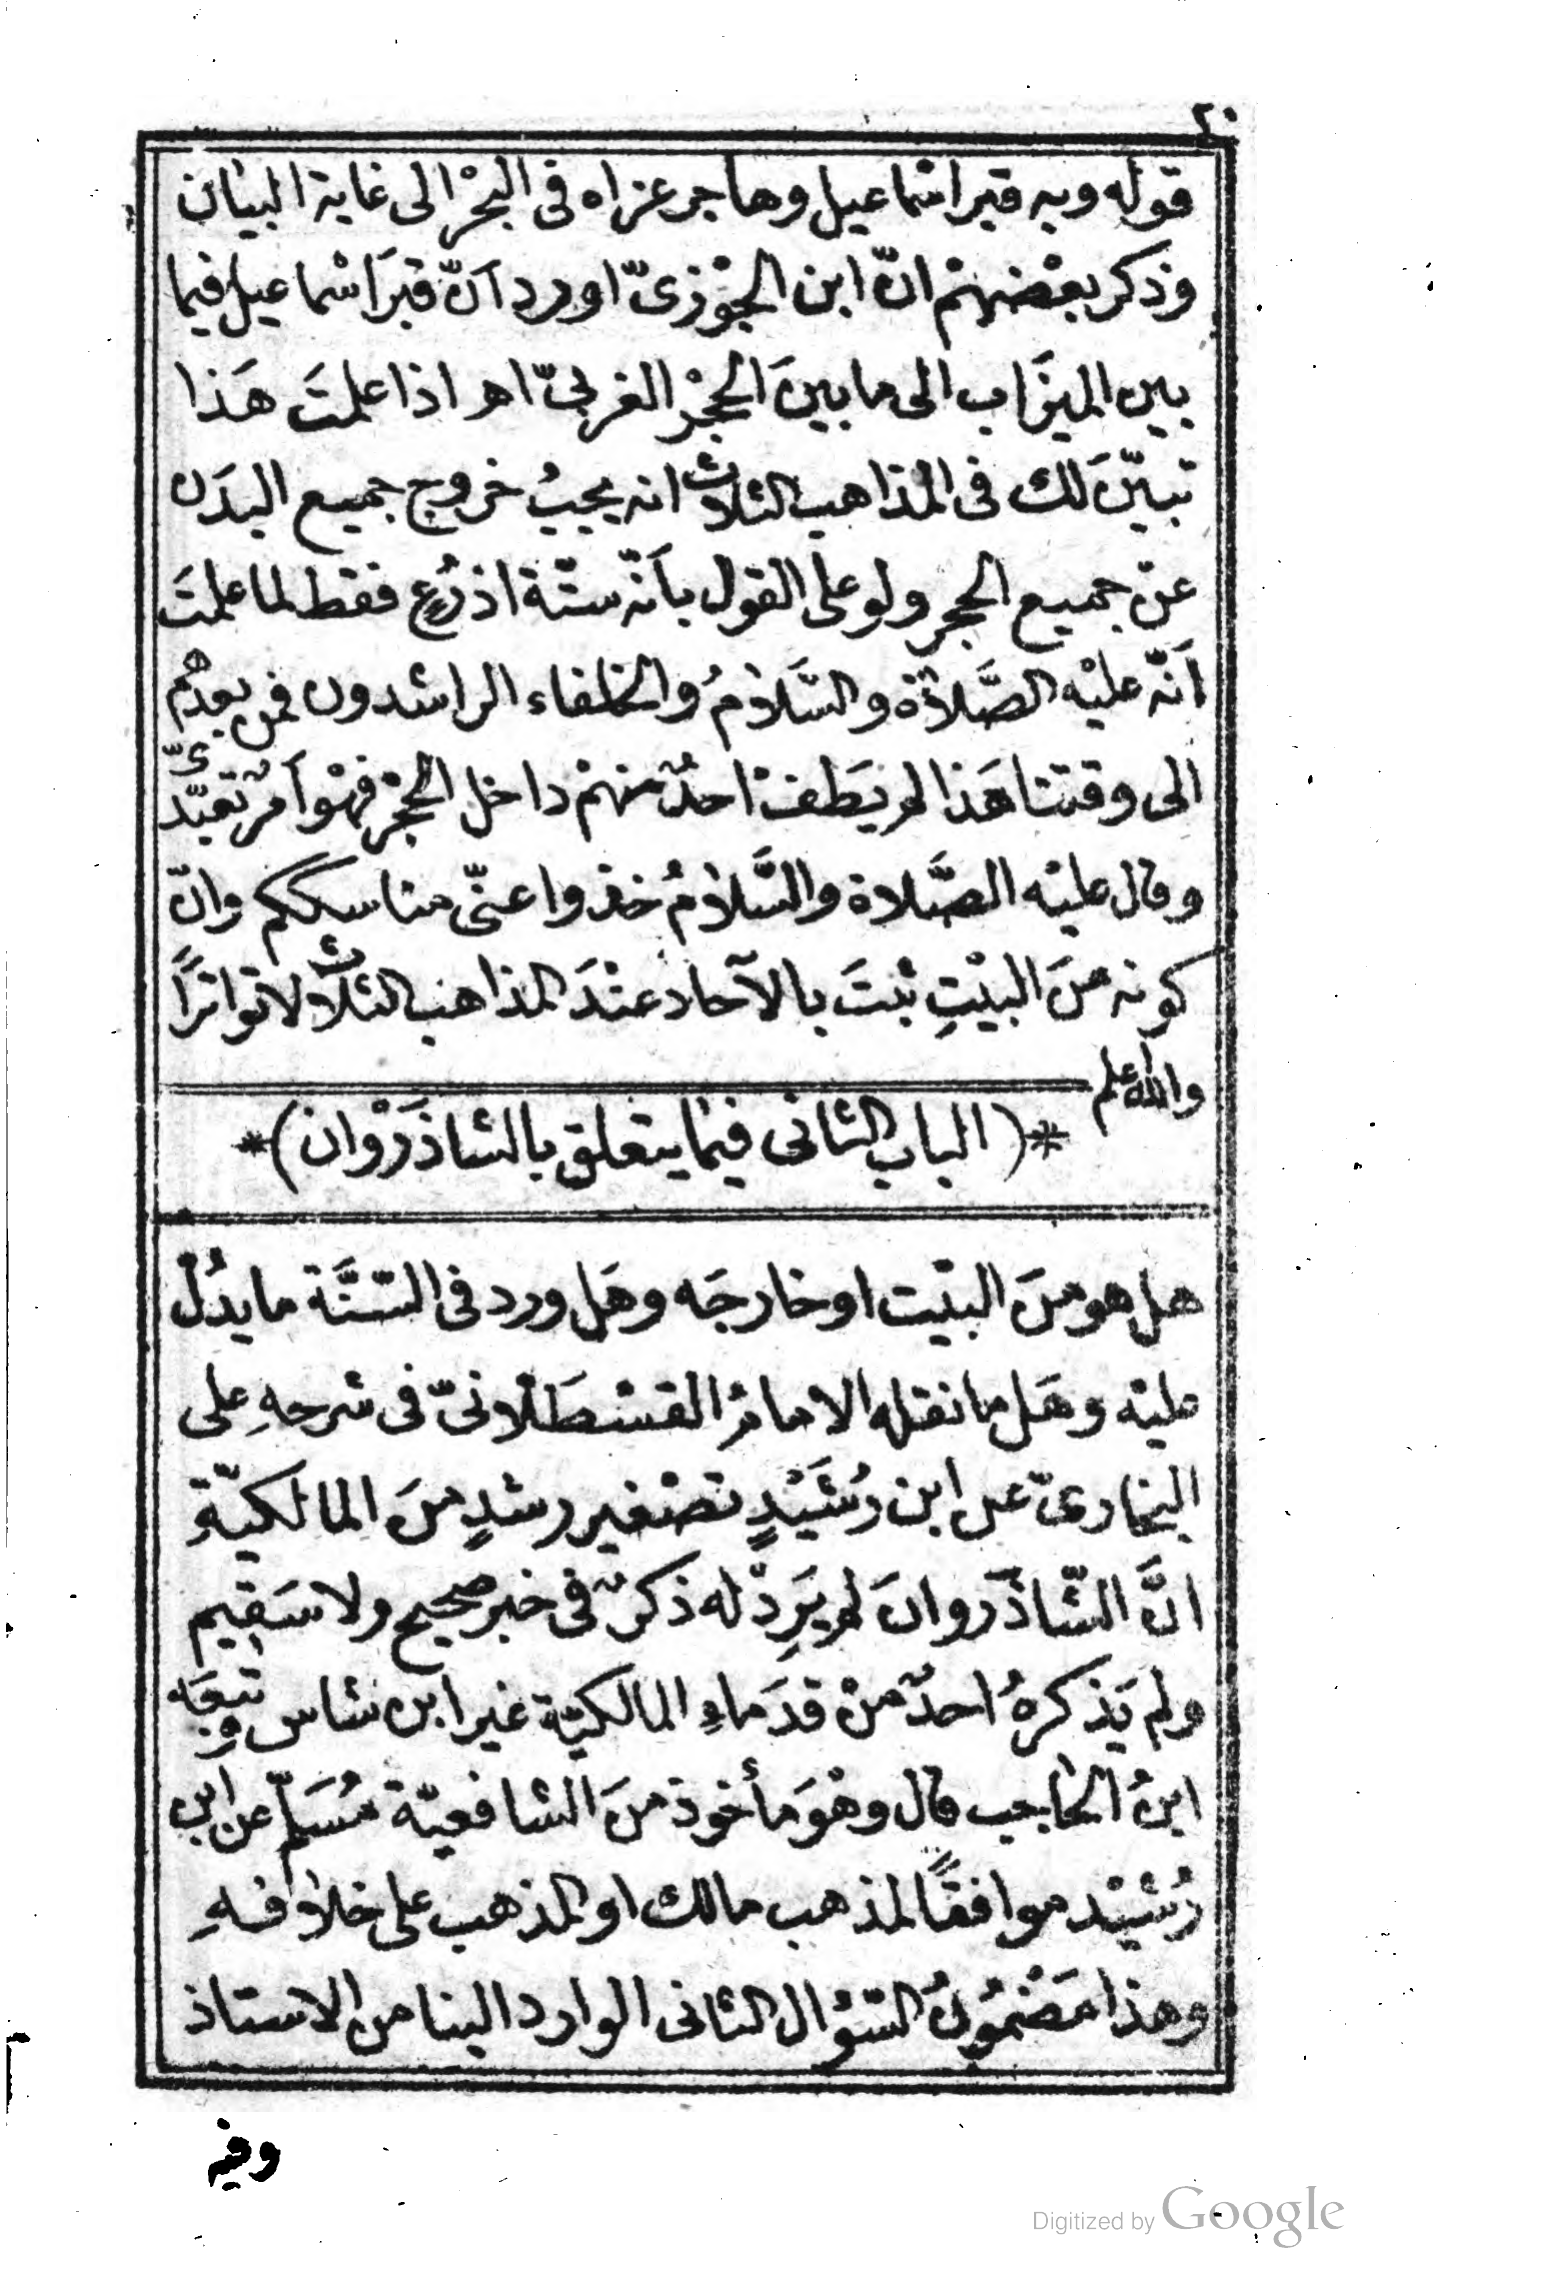 ٢٠
قوله وبه قبر اسْماعيل وهاجر عزاه فى البحْر الى غاية البيان
وذكر بعْضهمْ انّ ابن الجوْزىّ اورد اَنّ قبرَ اسْماعيل فيما
بين الميزَاب الى ما بينَ الحجْر الغربىّ اهـ اذا علمتَ هَذا
تبيّنَ لك فى المذاهب الثلاث انه يجبُ خروج جميع البدَن
عنْ جميع الحجر ولو على القول بأَنّه ستّة اذرُع فقط لما علمتَ
اَنّه عليْه الصَّلاة والسَّلامُ والخلفاء الراشدون فمن بعدهم
الى وقتنا هَذا لم يَطفْ احدٌ منهمْ داخل الحجْر فهْو اَمرٌ تعبّدىّ
وقال عليْه الصَّلاة والسَّلامُ خذوا عنّى مناسككم وانّ
كونه منَ البيْتِ ثبتَ بالآحاد عنْدَ المذاهب الثلاث لا تواترًا
والله اعلم
*( الباب الثانى فيما يتعلق بالشاذَرْوان )*
هل هو منَ البيْت او خارجَه وهَل ورد فى السّنَّة ما يدُلّ
عليْه وهَل ما نقله الامامُ القسْطَلّانىّ فى شرحهِ على
البخارىّ عن ابن رُشَيْدٍ تصْغير رشدٍ منَ المالكيّةِ
انَّ الشّاذَروانَ لم يَرِدْ له ذكرٌ فى خبر صحيح ولا سَقيم
ولم يَذكرهُ احدٌ منْ قدَماءِ المالكيّة غير ابن شاس وتبعَه
ابنُ الحاجب قال وهْوَ مأخوذ منَ الشافعيّة مُسَلّم عن ابن
رُشيْد موافقًا لمذهب مالك او المذهب على خلافهِ
وهذا مَضْمُونُ السّؤال الثانى الوارد الينا من الاستاذ
وفيه
Digitized by Google